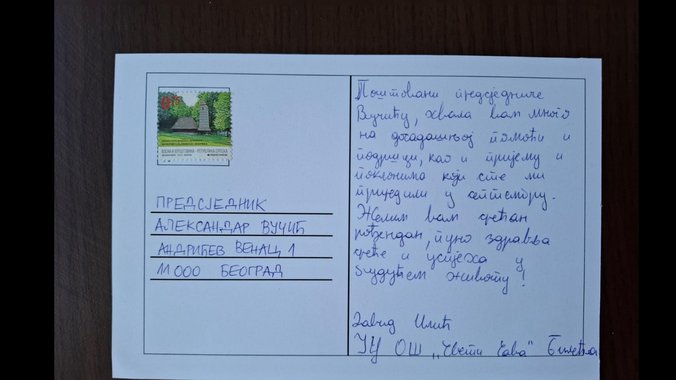 БОСНА И ХЕРЦЕГОВИНА - РЕПУБЛИКА СРПСКА
ПРЕДСЈЕДНИК
АЛЕКСАНДАР ВУЧИЋ
АНДРИЋЕВ ВЕНАЦ 1
11000 БЕОГРАД
Поштовани предсједниче
Вучићу, хвала вам много
на досадашњој помоћи и
подршци, као и пријему и
поклонима које сте ми
приједили у септембру.
Желим вам срећан
рођендан, пуно здравља
среће и успјеха у
будућем животу!
Давид Илић
ЈУ ОШ „Свети Сава" Билећа